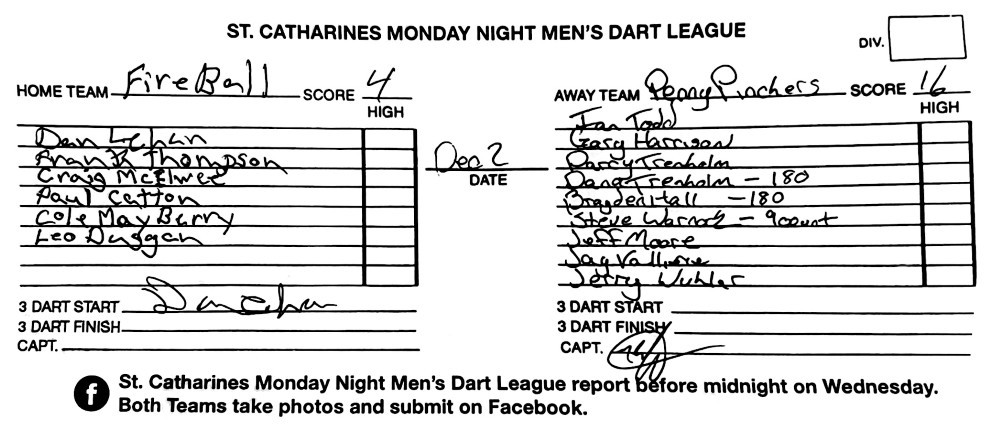 ST. CATHARINES MONDAY NIGHT MEN'S DART LEAGUE
DIV.
HOME TEAM Fire Ball SCORE 4
HIGH
AWAY TEAM Penny Pinchers SCORE 16
HIGH
Dan Lehan
Frank Thompson
Craig McElwee
Paul Catton
Cole May Berry
Leo Duggan
Dec 2
DATE
Ian Todd
Gary Harrison
Darcy Trenholm
Doug Trenholm - 180
Brayden Hall - 180
Steve Warnock - 9count
Jeff Moore
Jay
Jerry Wuhler
3 DART START Dan Lehan
3 DART FINISH
CAPT.
3 DART START
3 DART FINISH
CAPT.
f St. Catharines Monday Night Men's Dart League report before midnight on Wednesday.
Both Teams take photos and submit on Facebook.